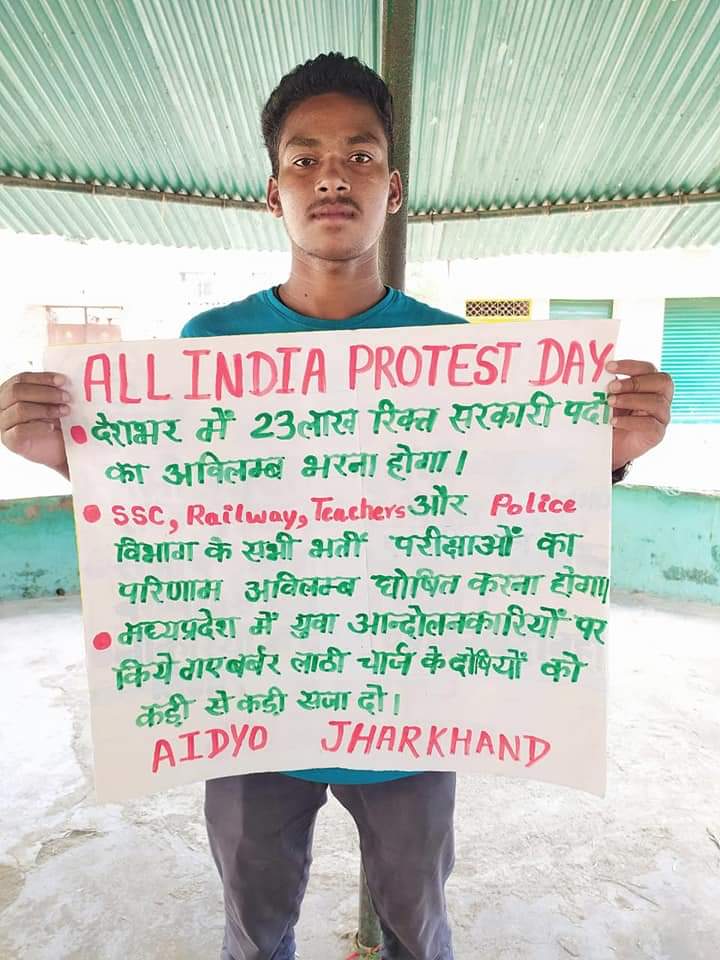 ALL INDIA PROTEST DAY
• देशभर में 23लाख रिक्त सरकारी पदों
का अविलम्ब भरना होगा।
• SSC, Railway, Teachers और Police
विभाग के सभी भर्ती परीक्षाओं का
परिणाम अविलम्ब घोषित करना होगा।
• मध्यप्रदेश में युवा आन्दोलनकारियों पर
किये गए बर्बर लाठी चार्ज के दोषियों को
कड़ी से कड़ी सजा दो।
AIDYO JHARKHAND